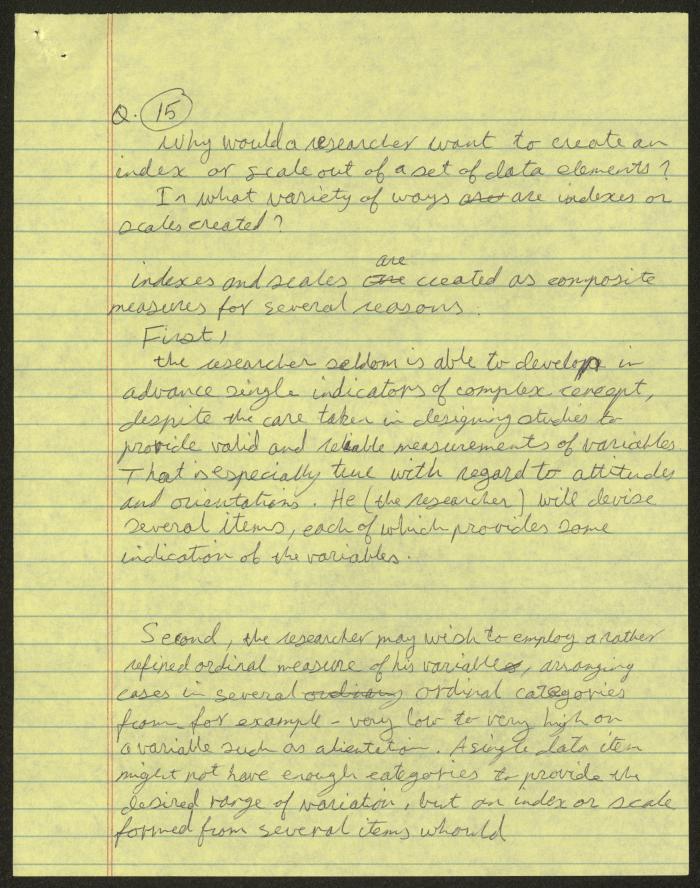 Q. 15
Why would a researcher want to create an
index or scale out of a set of data elements?
In what variety of ways are are indexes or
scales created?
are
indexes and scales are created as composite
measures for several reasons:
First,
the researcher seldom is able to develop in
advance single indicators of complex concept,
despite the care taken in designing studies to
provide valid and reliable measurements of variables.
That is especially true with regard to attitudes
and orientations. He (the researcher) will devise
several items, each of which provides some
indication of the variables.
Second, the researcher may wish to employ a rather
refined ordinal measure of his variables, arranging
cases in several ordinary ordinal categories
from for example - very low to very high on
a variable such as alientation. A single data item
might not have enough categories to provide the
desired range of variation, but an index or scale
formed from several items whould